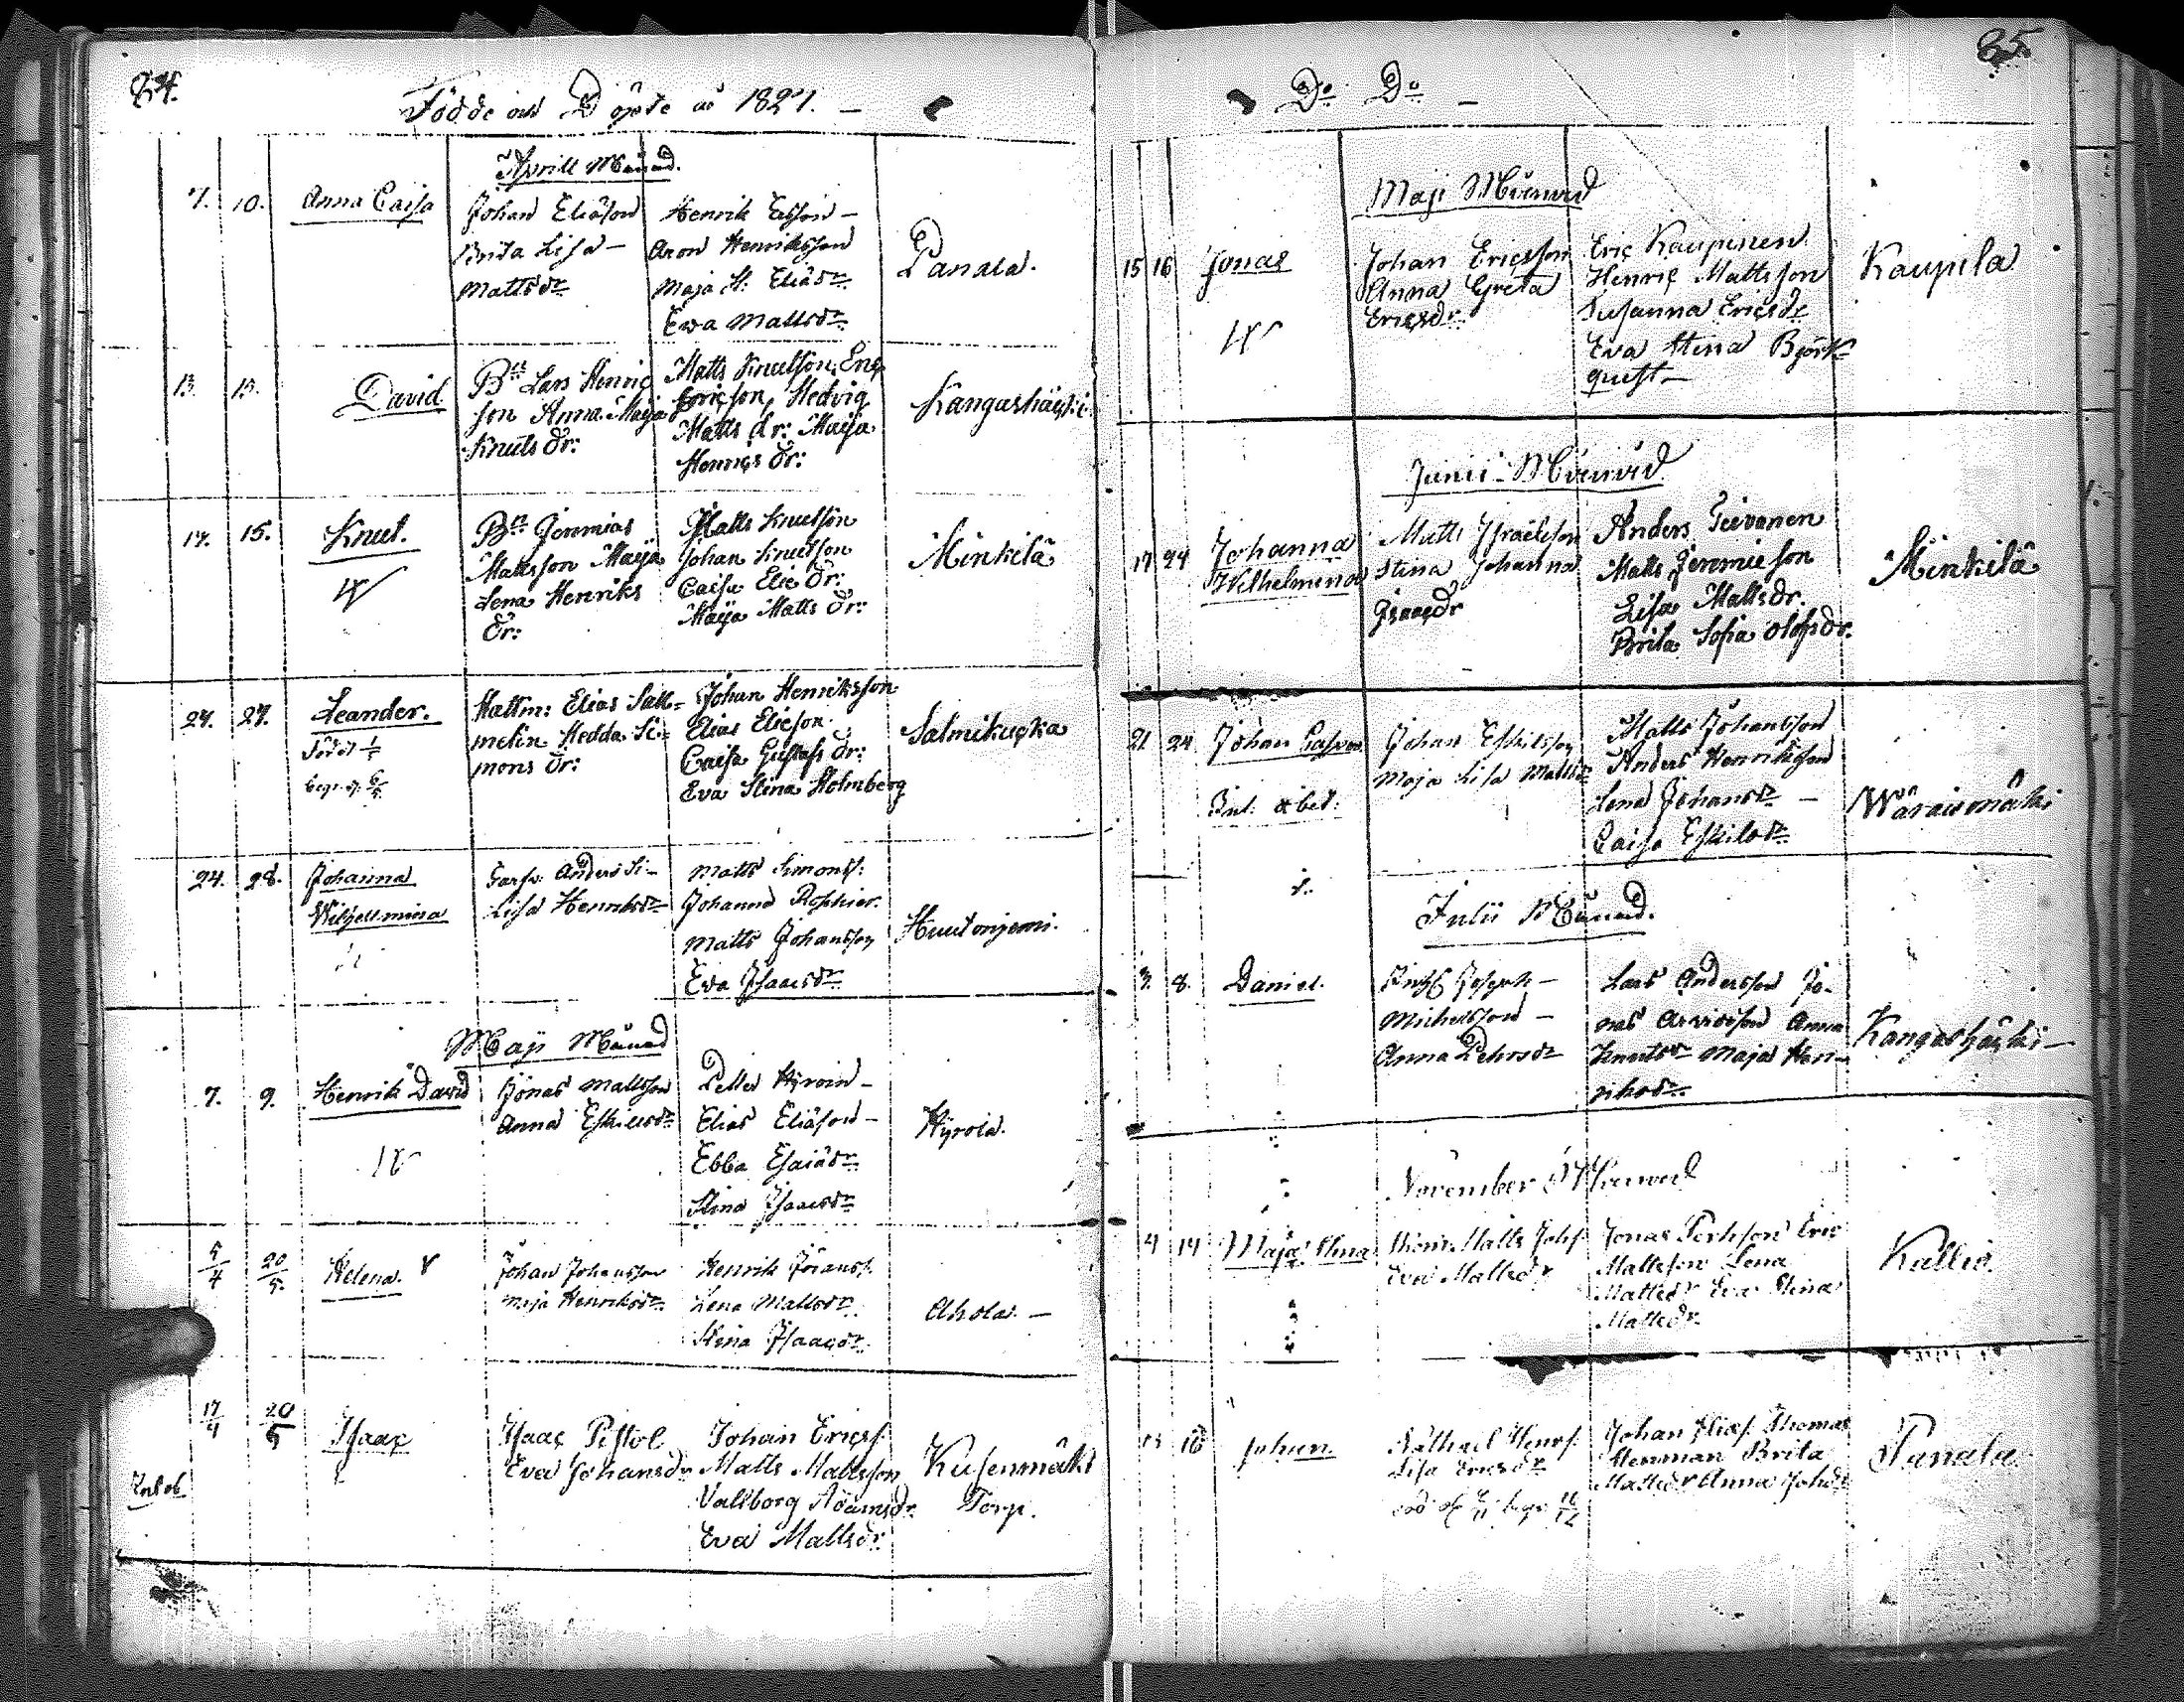 84.
Födde och Döpte år 1827. —
Aprill Månad.
7. 10. Anna Caisa
Johan Eliäson
Brita Lisa —
Mattsdr
Henrik Ersson —
Aron Henriksson
Maja H. Eliäsdr
Ewa Mattsdr
Panala.
13. 15. David
Bn Lars Henric
son Anna Maija
Knuts dr:
Matts Knutsson, Eric
Ericson, Hedvig
Matts dr: Maija
Henrics dr:
Kangashäcki
14. 15. Knut.
Bn Jeremias
Mattsson Maija
Lena Henriks
dr:
Matts Knutsson
Johan Knutsson
Caisa Elie dr:
Maija Matts dr:
Minkilä
24. 27. Leander.
begr. 6/5
Elias Sall=
melin Hedda Si=
mons dr:
Johan Henriksson
Elias Elieson
Caisa Gustafs dr:
Eva Stina Holmberg
Salmikucka
24. 28. Johanna
Wilhelmina
Anders Si—
Lisa Henriksdr
Matts Simonss:
Johanna
Matts Johansson
Eva Isaacsdr
Huutoniemi.
Maji Månad
7. 9. Henrik David
Jonas Mattsson
Anna Eskilsdr
Petter Hyroin —
Elias Eliäson —
Ebba Esaiädr
Stina Isaacsdr
Hyrola.
5/4 20/5. Helena.
Johan Johansson
Maja Henriksdr
Henrik Joransf.
Lena Mattsdr
Stina Isaacsdr
Ahola. —
17/4 20/5 Isaac
Isaac Pistol
Eva Johansdr
Johan Ericsf.
Matts Mattsson
Vallborg Adamsdr.
Eva Mattsdr
Kusenmäki
Torp.
85.
Do Do —
Maji Månad
15 16 Jonas
Johan Ericsson
Anna Greta
Ericsdr
Eric Kaupinen
Henric Mattsson
Susanna Ericsdr
Eva Stina Björk=
quist —
Kaupila
Junii Månad
17 24 Johanna
Wilhelmina
Matts Israelsson
Stina Johanna
Isaacsdr
Anders Teevanen
Matts Jeremieson
Lisa Mattsdr.
Brita Sofia Olofsdr.
Minkilä
21 24 Johan Casper
Johan Eskilsson
Maja Lisa Mattsdr
Matts Johansson
Anders Henriksson
Lena Johansdr —
Caisa Eskilsdr
Wäräismäki
Julii Månad.
3. 8. Daniel.
Joseph —
Michelsson —
Anna Pehrsdr
Lars Andersson Jo-
nas Arvidsson Anna
Knutsdr Maja Hen-
riksdr
Kangashäcki —
November Månad
4 14 Maja Stina
Matts Johsf
Eva Mattsdr
Jonas Pehrson Eric
Mattsson Lena
Mattsdr Eva Stina
Mattsdr.
Kallio.
16 Johan
Nathael Henrsf.
Lisa Ericsdr
Johan Eliesf. Thomas
Stenman Brita
Mattsdr Anna Johsdr
Panala